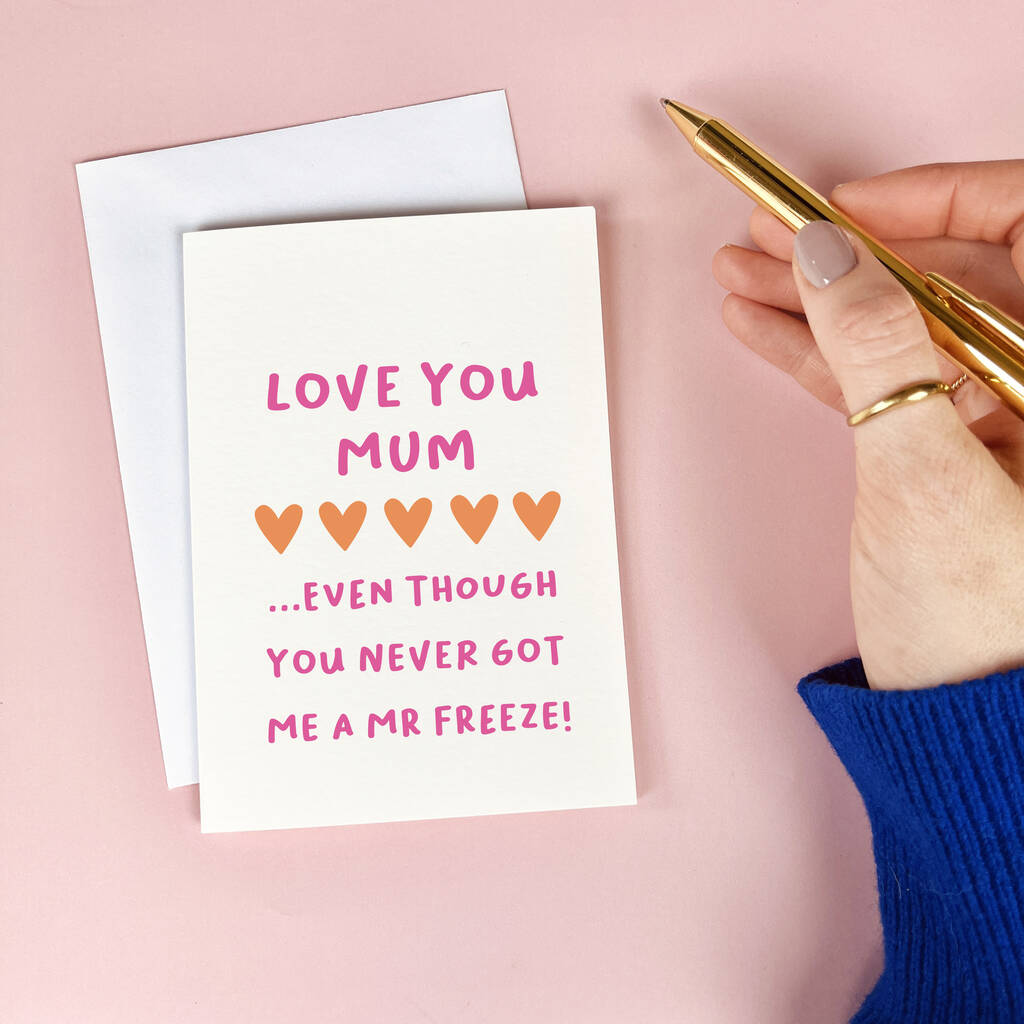 LOVE YOU
MUM
...EVEN THOUGH
YOU NEVER GOT
ME A MR FREEZE!